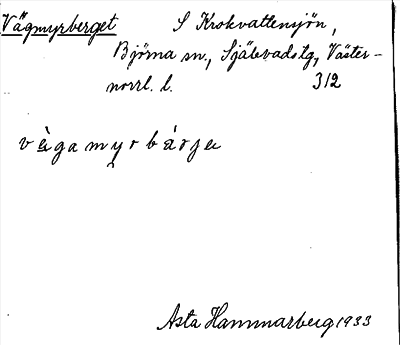 Vägmyrberget S Krokvattensjön,
Björna sn., Själevads tg, Väster-
norrl. l. 312
vägamyrbärje
Asta Hammarberg 1933